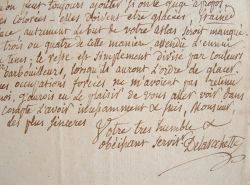 on peut toujours ajouter
Colorés - elles doivent être glacées
autrement le but de votre atlas seroit manqué
trois ou quatre de cette manière
tems; le reste est simplement divisé par couleurs
barbouilleurs, lorsqu'ils auront d'ordre de glacer
occupations forcées ne m'avoient pas
moi, j'aurois eu le plaisir de vous aller voir dans
compte d'avoir incessamment & suis, Monsieur,
des plus sincères
Votre très humble &
obéissant servit. Delarochette